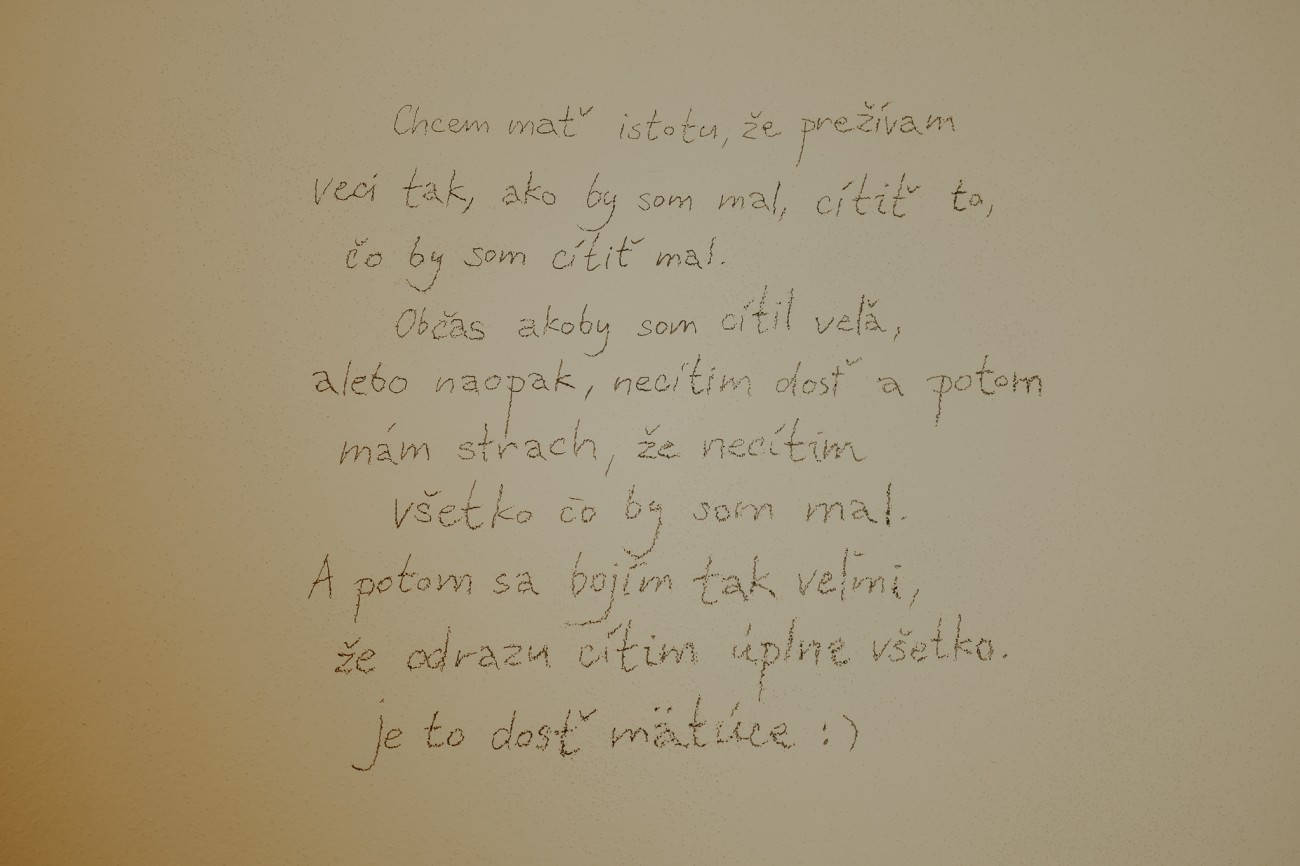 Chcem mať istotu, že prežívam
veci tak, ako by som mal, cítiť to,
čo by som cítiť mal.
Občas akoby som cítil veľa,
alebo naopak, necítim dosť a potom
mám strach, že necítim
všetko čo by som mal.
A potom sa bojím tak veľmi,
že odrazu cítim úplne všetko.
je to dosť mätúce :)